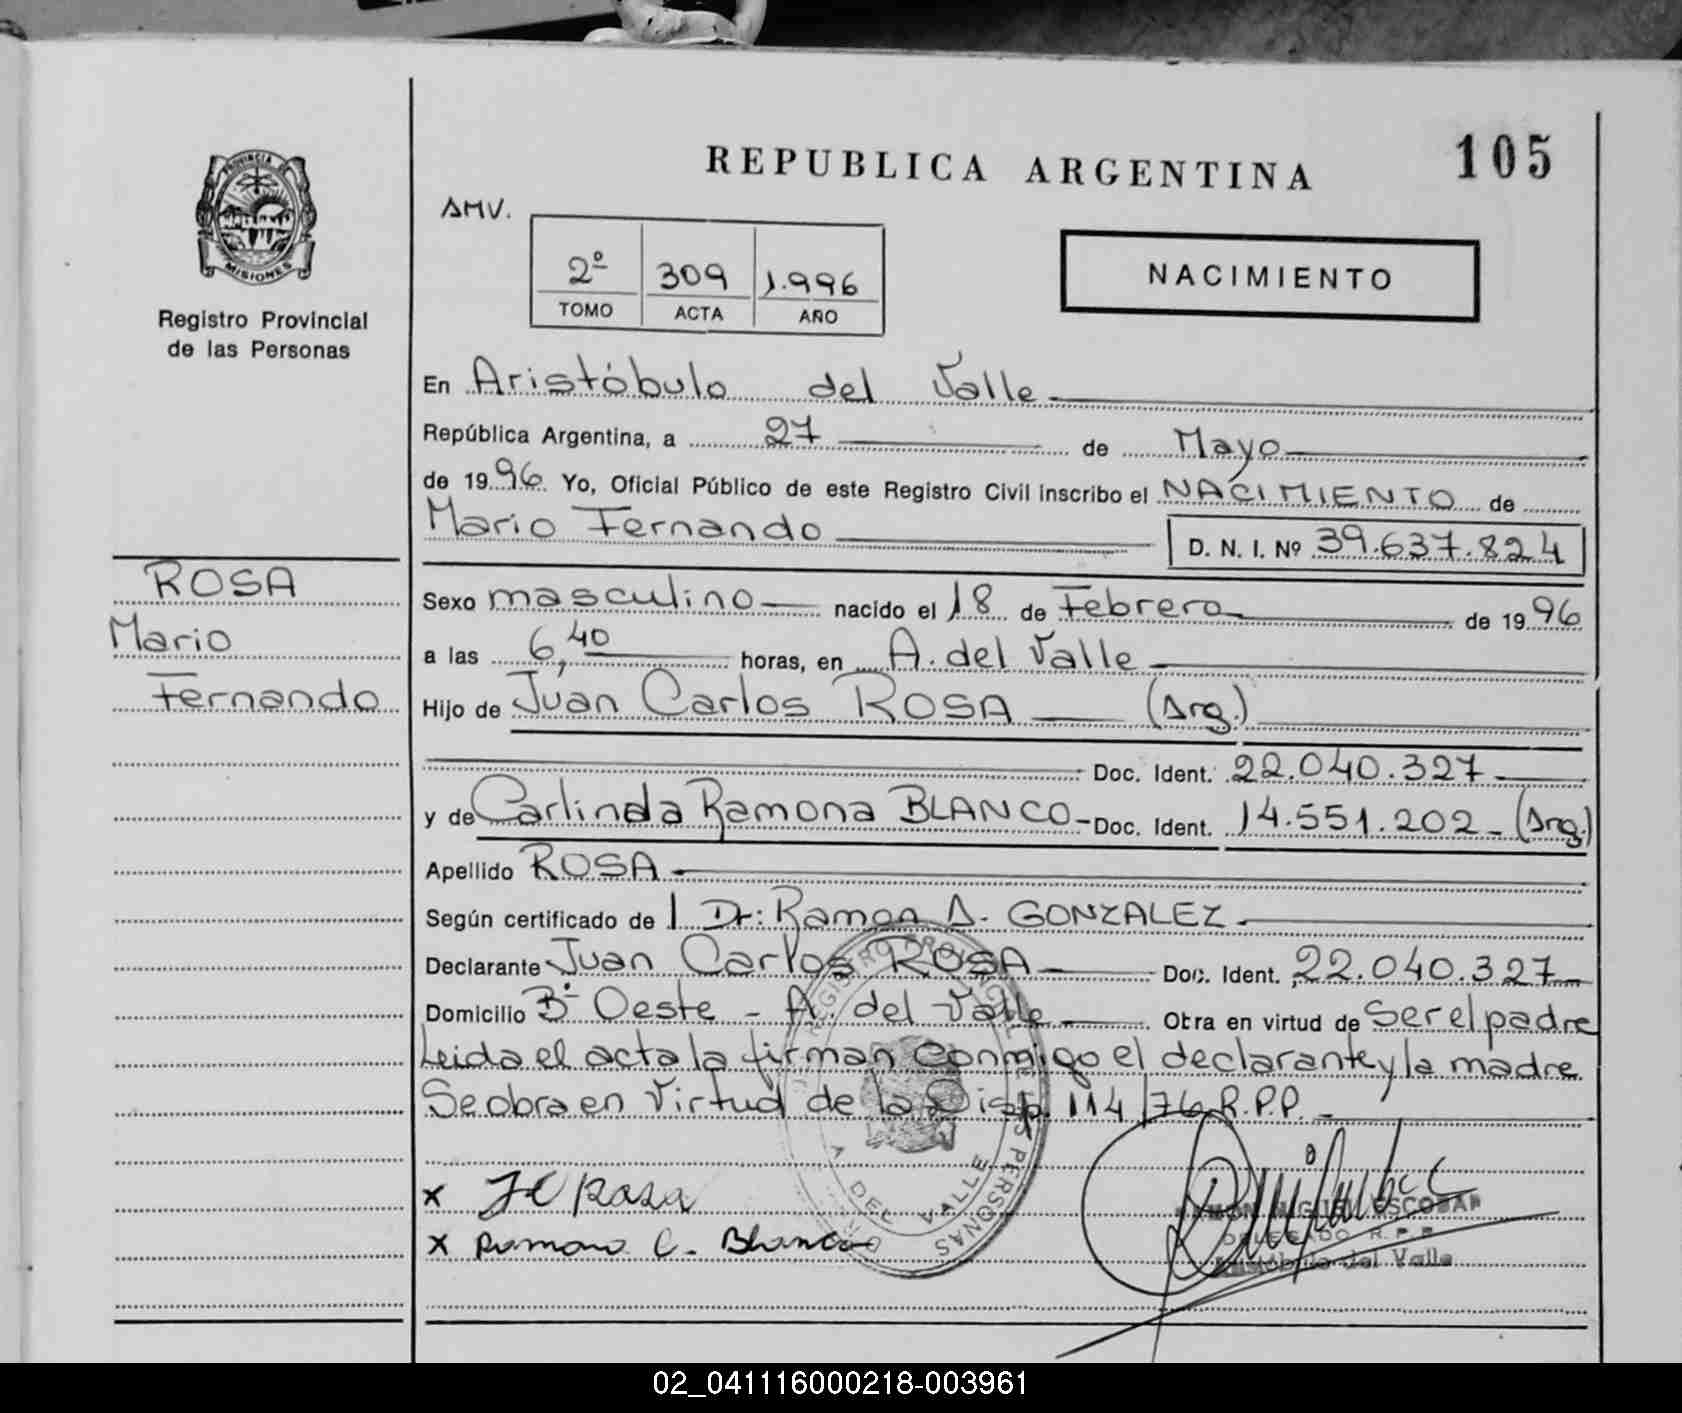 REPUBLICA ARGENTINA
105
PROVINCIA DE
MISIONES
Registro Provincial
de las Personas
AMV.
2º 309 1.996
TOMO ACTA AÑO
NACIMIENTO
En Aristóbulo del Valle
República Argentina, a 27 de Mayo
de 1996 Yo, Oficial Público de este Registro Civil inscribo el NACIMIENTO de
Mario Fernando
D. N. I. Nº 39.637.824
ROSA
Mario
Fernando
Sexo masculino nacido el 18 de Febrero de 1996
a las 6,40 horas, en A. del Valle
Hijo de Juan Carlos ROSA (Arg.)
Doc. Ident. 22.040.327
y de Carlinda Ramona BLANCO - Doc. Ident. 14.551.202 - (Arg.)
Apellido ROSA
Según certificado de Dr: Ramon A. GONZALEZ
Declarante Juan Carlos ROSA Doc. Ident. 22.040.327
Domicilio Bº Oeste - A. del Valle Obra en virtud de Ser el padre
Leida el acta la firman conmigo el declarante y la madre
Se obra en Virtud de la Disp. 114/76 R.P.P.
x JC Rosa
x Ramona C. Blanco
A. DEL VALLE
PERSONAS
RAMON MIGUEL ESCOBAR
DELEGADO R.P.P.
Aristóbulo del Valle
02_041116000218-003961